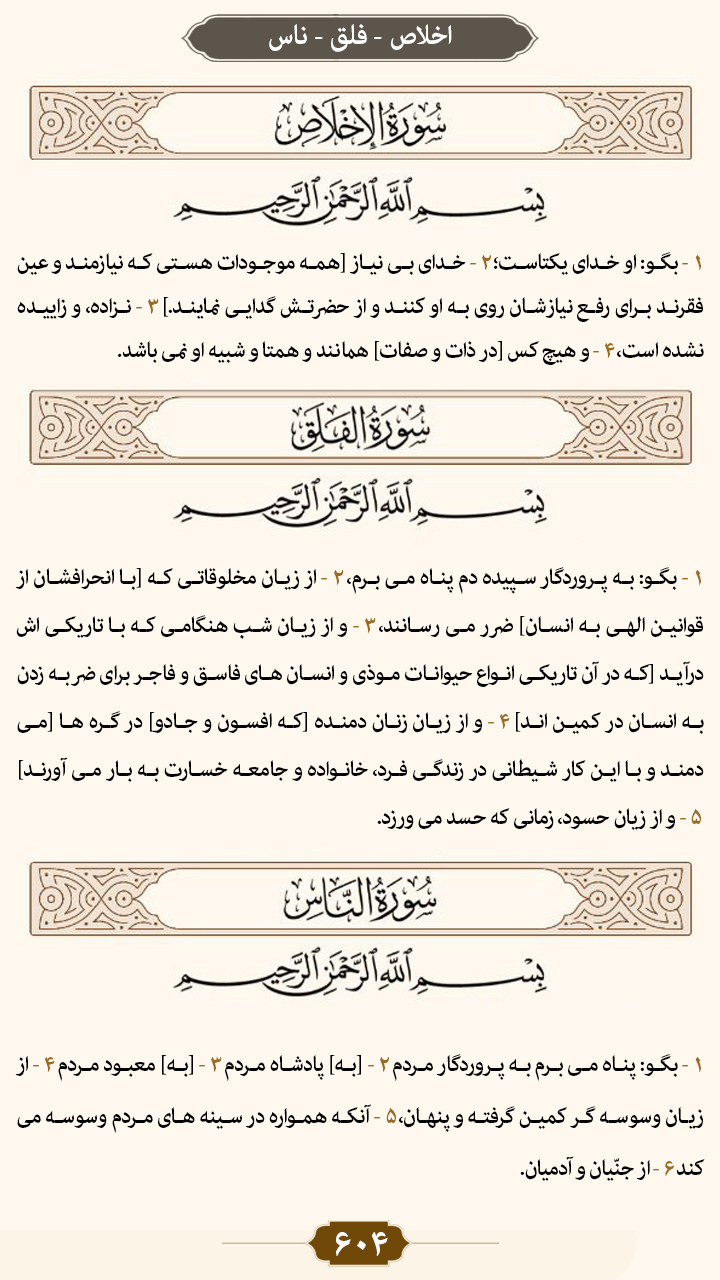 اخلاص - فلق - ناس
سُورَةُ الإِخْلَاصِ
بِسْمِ ٱللَّهِ ٱلرَّحْمَٰنِ ٱلرَّحِيمِ
۱ - بگو: او خدای یکتاست؛ ۲ - خدای بی نیاز [همه موجودات هستی که نیازمند و عین
فقرند برای رفع نیازشان روی به او کنند و از حضرتش گدایی نمایند.] ۳ - نزاده، و زاییده
نشده است، ۴ - و هیچ کس [در ذات و صفات] همانند و همتا و شبیه او نمی باشد.
سُورَةُ الفَلَقِ
بِسْمِ ٱللَّهِ ٱلرَّحْمَٰنِ ٱلرَّحِيمِ
۱ - بگو: به پروردگار سپیده دم پناه می برم، ۲ - از زیان مخلوقاتی که [با انحرافشان از
قوانین الهی به انسان] ضرر می رسانند، ۳ - و از زیان شب هنگامی که با تاریکی اش
درآید [که در آن تاریکی انواع حیوانات موذی و انسان های فاسق و فاجر برای ضربه زدن
به انسان در کمین اند] ۴ - و از زیان زنان دمنده [که افسون و جادو] در گره ها [می
دمند و با این کار شیطانی در زندگی فرد، خانواده و جامعه خسارت به بار می آورند]
۵ - و از زیان حسود، زمانی که حسد می ورزد.
سُورَةُ النَّاسِ
بِسْمِ ٱللَّهِ ٱلرَّحْمَٰنِ ٱلرَّحِيمِ
۱ - بگو: پناه می برم به پروردگار مردم ۲ - [به] پادشاه مردم ۳ - [به] معبود مردم ۴ - از
زیان وسوسه گر کمین گرفته و پنهان، ۵ - آنکه همواره در سینه های مردم وسوسه می
کند ۶ - از جنّیان و آدمیان.
۶۰۴